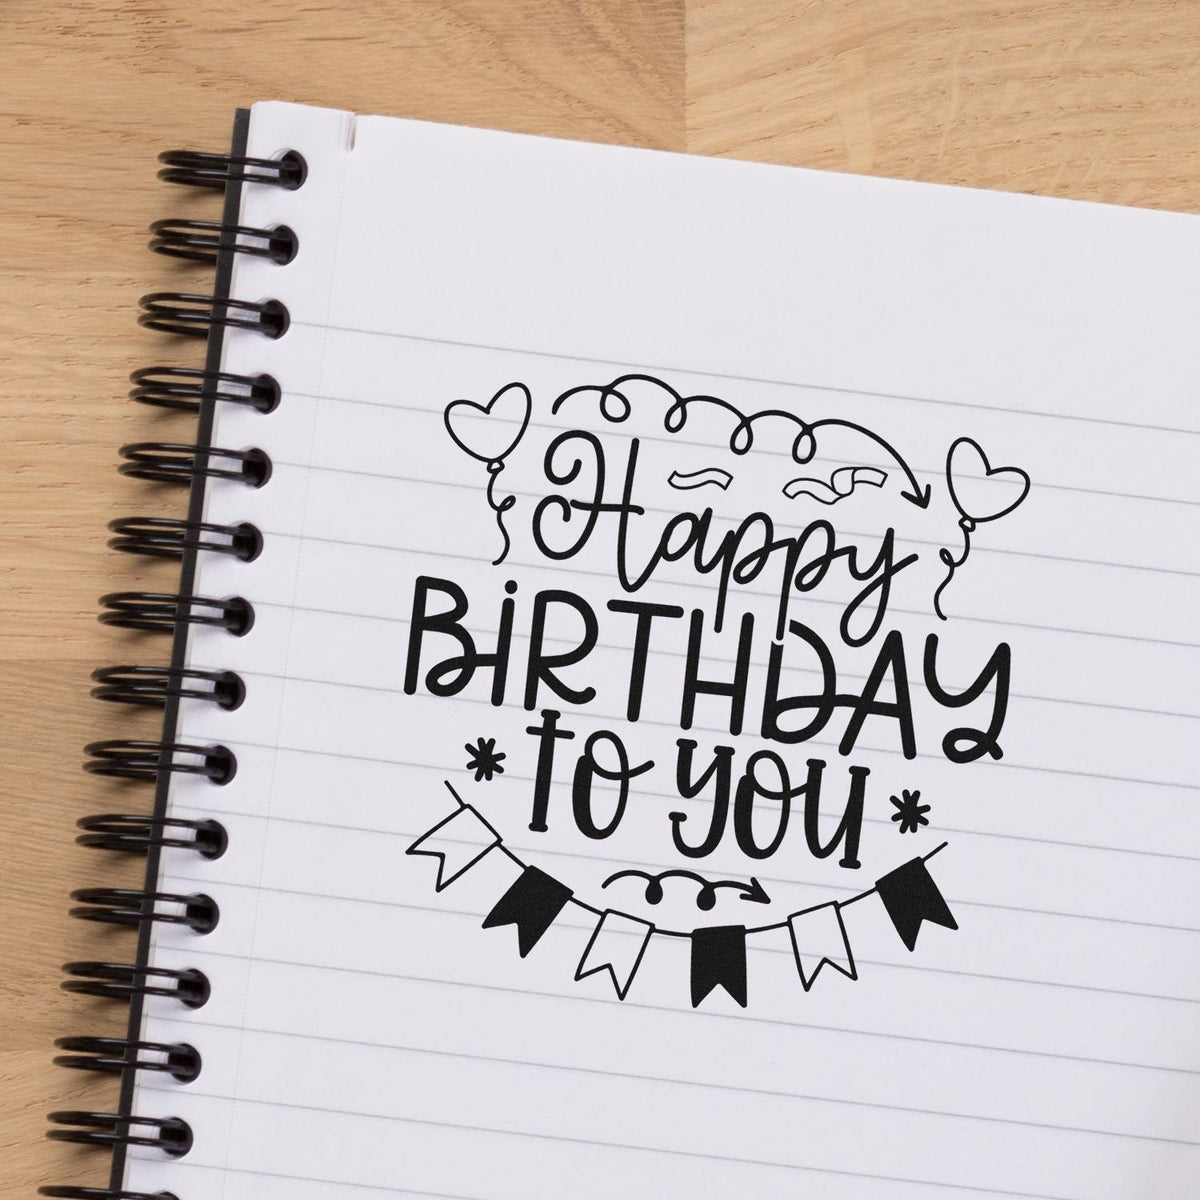 Happy
BiRTHDAY
to you